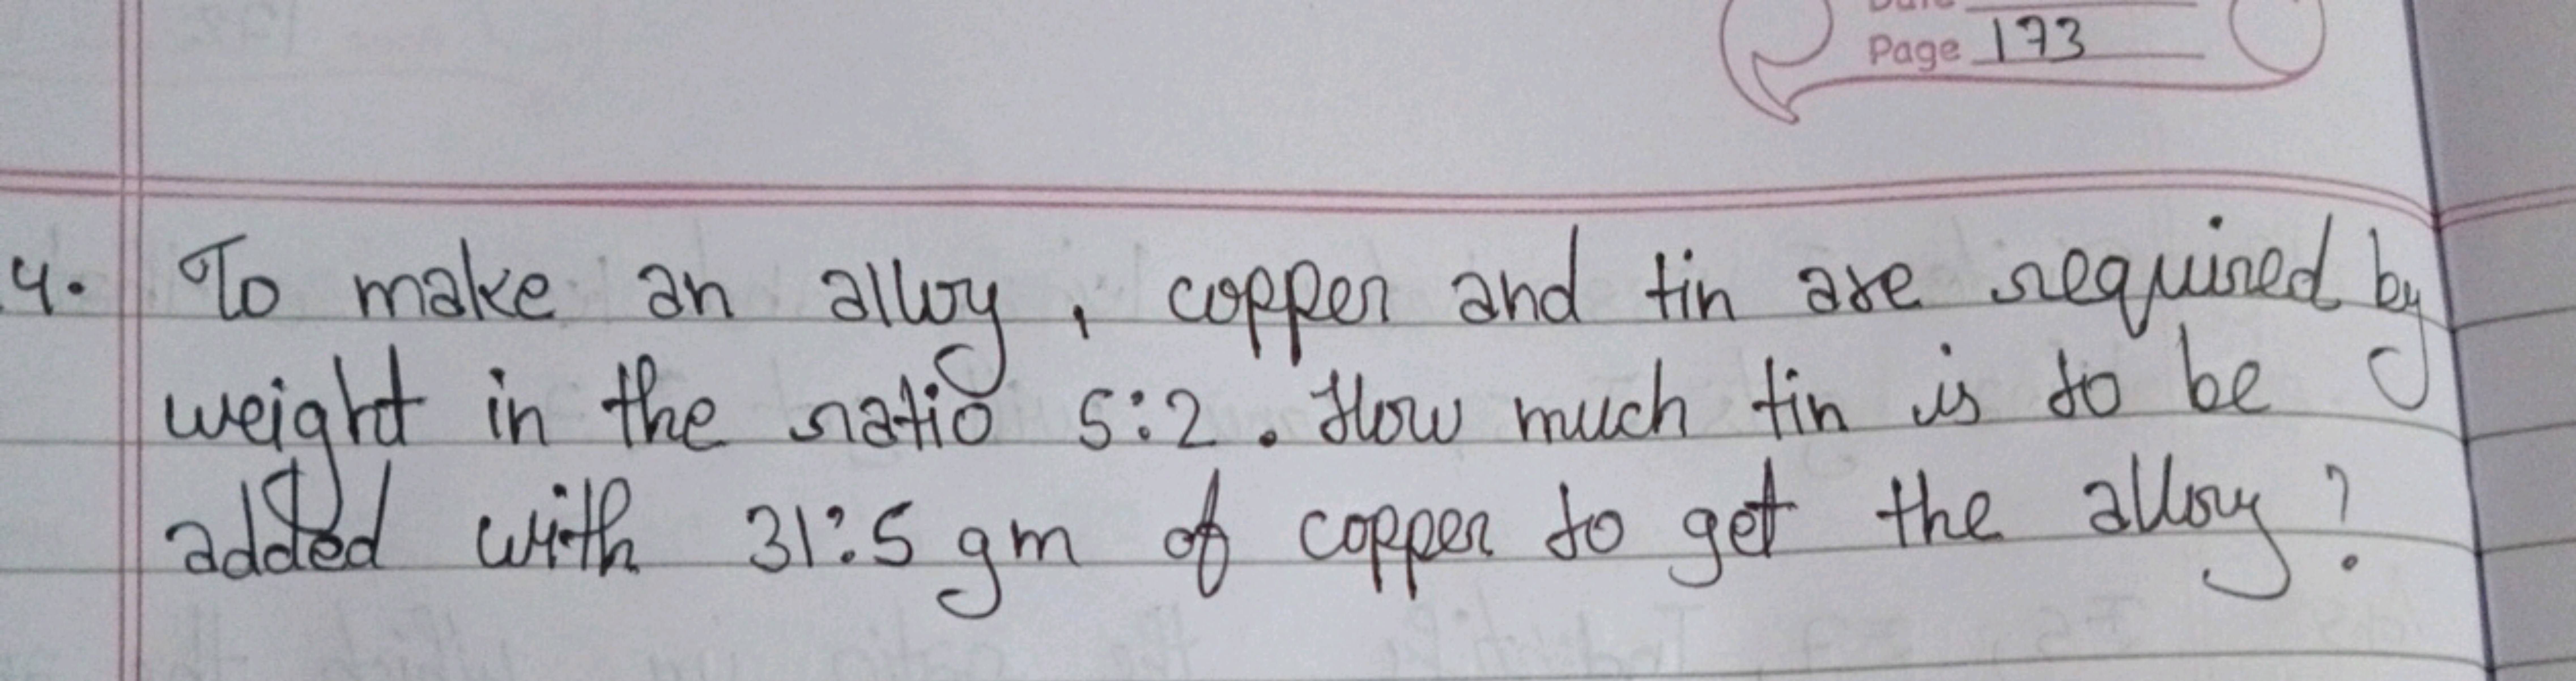 Date
Page 173
4. To make an alloy, copper and tin are required by
weight in the ratio 5:2. How much tin is to be
added with 31:5 gm of copper to get the alloy?